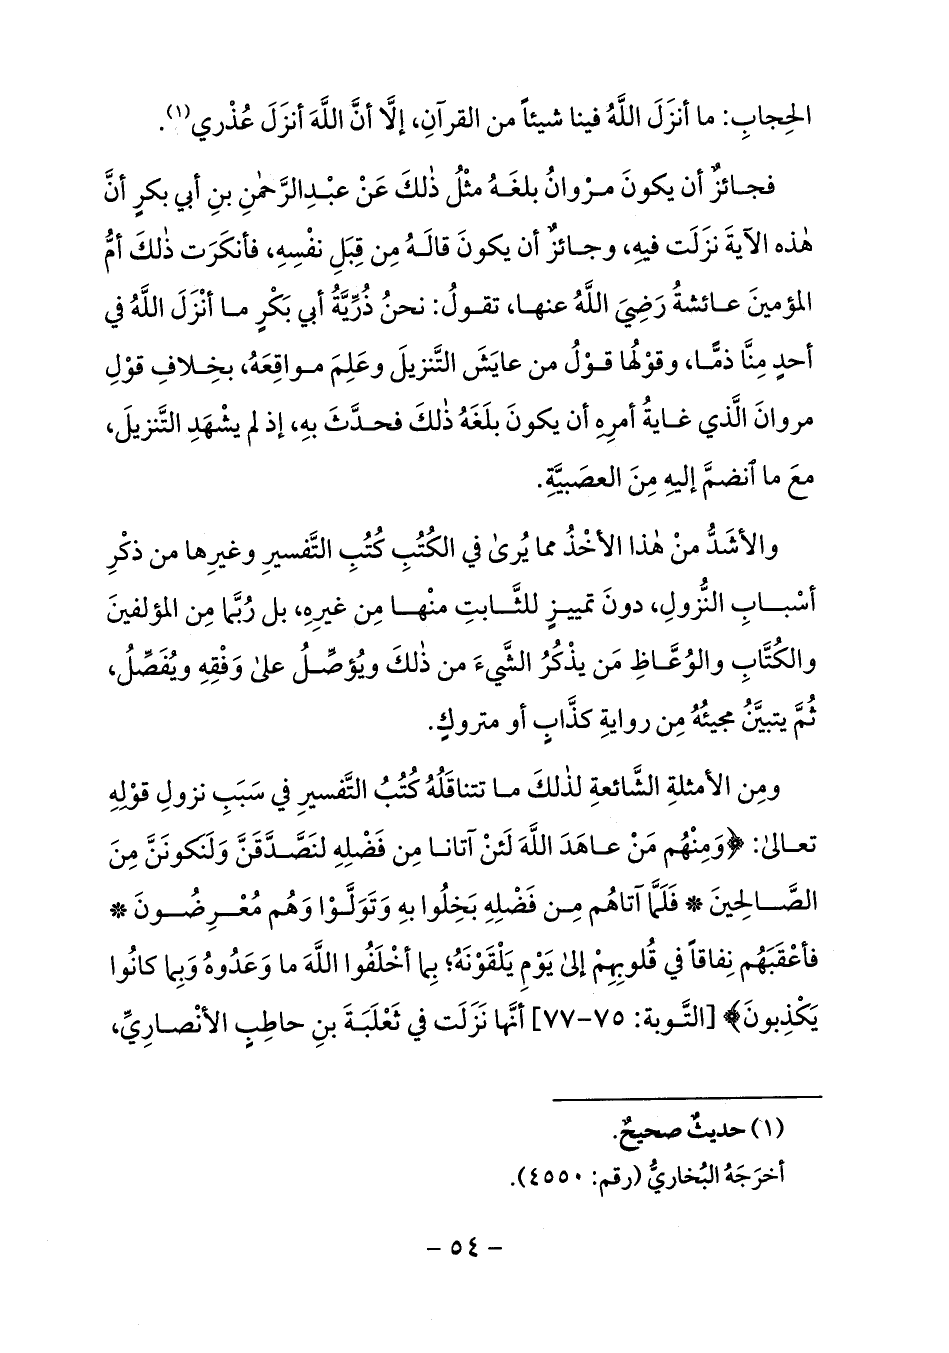 الحِجابِ: ما أنزَلَ اللَّهُ فينا شيئاً من القرآنِ، إلَّا أنَّ اللَّهَ أنزَلَ عُذْري(١).
فجائزٌ أن يكونَ مرْوانُ بلغَهُ مثْلُ ذٰلكَ عَنْ عبْدِالرَّحمٰنِ بنِ أبي بكرٍ أنَّ
هٰذه الآيةَ نزَلَت فيهِ، وجائزٌ أن يكونَ قالَهُ مِن قِبَلِ نفْسِهِ، فأنكَرَت ذٰلكَ أمُّ
المؤمنينَ عائشةُ رَضِيَ اللَّهُ عنها، تقولُ: نحنُ ذُرِّيَّةُ أبي بَكْرٍ ما أنْزَلَ اللَّهُ في
أحدٍ مِنَّا ذمًّا، وقوْلُها قوْلُ من عايَشَ التَّنزيلَ وعَلِمَ مواقِعَهُ، بخِلافِ قوْلِ
مروانَ الَّذي غايةُ أمرِهِ أن يكونَ بلَغَهُ ذٰلكَ فحدَّثَ بهِ، إذ لم يشْهَدِ التَّنزيلَ،
معَ ما ٱنضمَّ إليهِ مِنَ العصَبيَّةِ.
والأشَدُّ منْ هٰذا الأخْذُ مما يُرىٰ في الكتُبِ كتُبِ التَّفسيرِ وغيرِها من ذكْرِ
أسْبابِ النُّزولِ، دونَ تمييزٍ للثَّابتِ منْها مِن غيرِهِ، بل رُبَّما مِن المؤلفينَ
والكُتَّابِ والوُعَّاظِ مَن يذْكُرُ الشَّيءَ من ذٰلكَ ويُؤصِّلُ علىٰ وَفْقِهِ ويُفَصِّلُ،
ثُمَّ يتبيَّنُ مجيئُهُ مِن روايةِ كذَّابٍ أو متروكٍ.
ومِن الأمثلةِ الشَّائعةِ لذٰلكَ ما تتناقَلُهُ كتُبُ التَّفسيرِ في سَبَبِ نزولِ قوْلِهِ
تعالىٰ: ﴿وَمِنْهُم مَنْ عاهَدَ اللَّهَ لَئنْ آتانا مِن فَضْلِهِ لنَصَّدَّقَنَّ وَلَنَكونَنَّ مِنَ
الصَّالحِينَ * فَلَمَّا آتاهُم مِن فَضْلِهِ بَخِلُوا بهِ وَتَوَلَّوْا وَهُم مُعْرِضُونَ *
فأعْقَبَهُم نِفاقاً في قُلوبِهِمْ إلىٰ يَوْمِ يَلْقَوْنَهُ؛ بِما أخْلَفُوا اللَّهَ ما وَعَدُوهُ وَبِما كانُوا
يَكْذِبونَ﴾ [التَّوبة: ٧٥-٧٧] أنَّها نَزَلَت في ثَعْلَبَةَ بنِ حاطِبٍ الأنْصاريِّ،
(١) حديثٌ صحيحٌ.
أخرَجَهُ البُخاريُّ (رقم: ٤٥٥٠).
- ٥٤ -